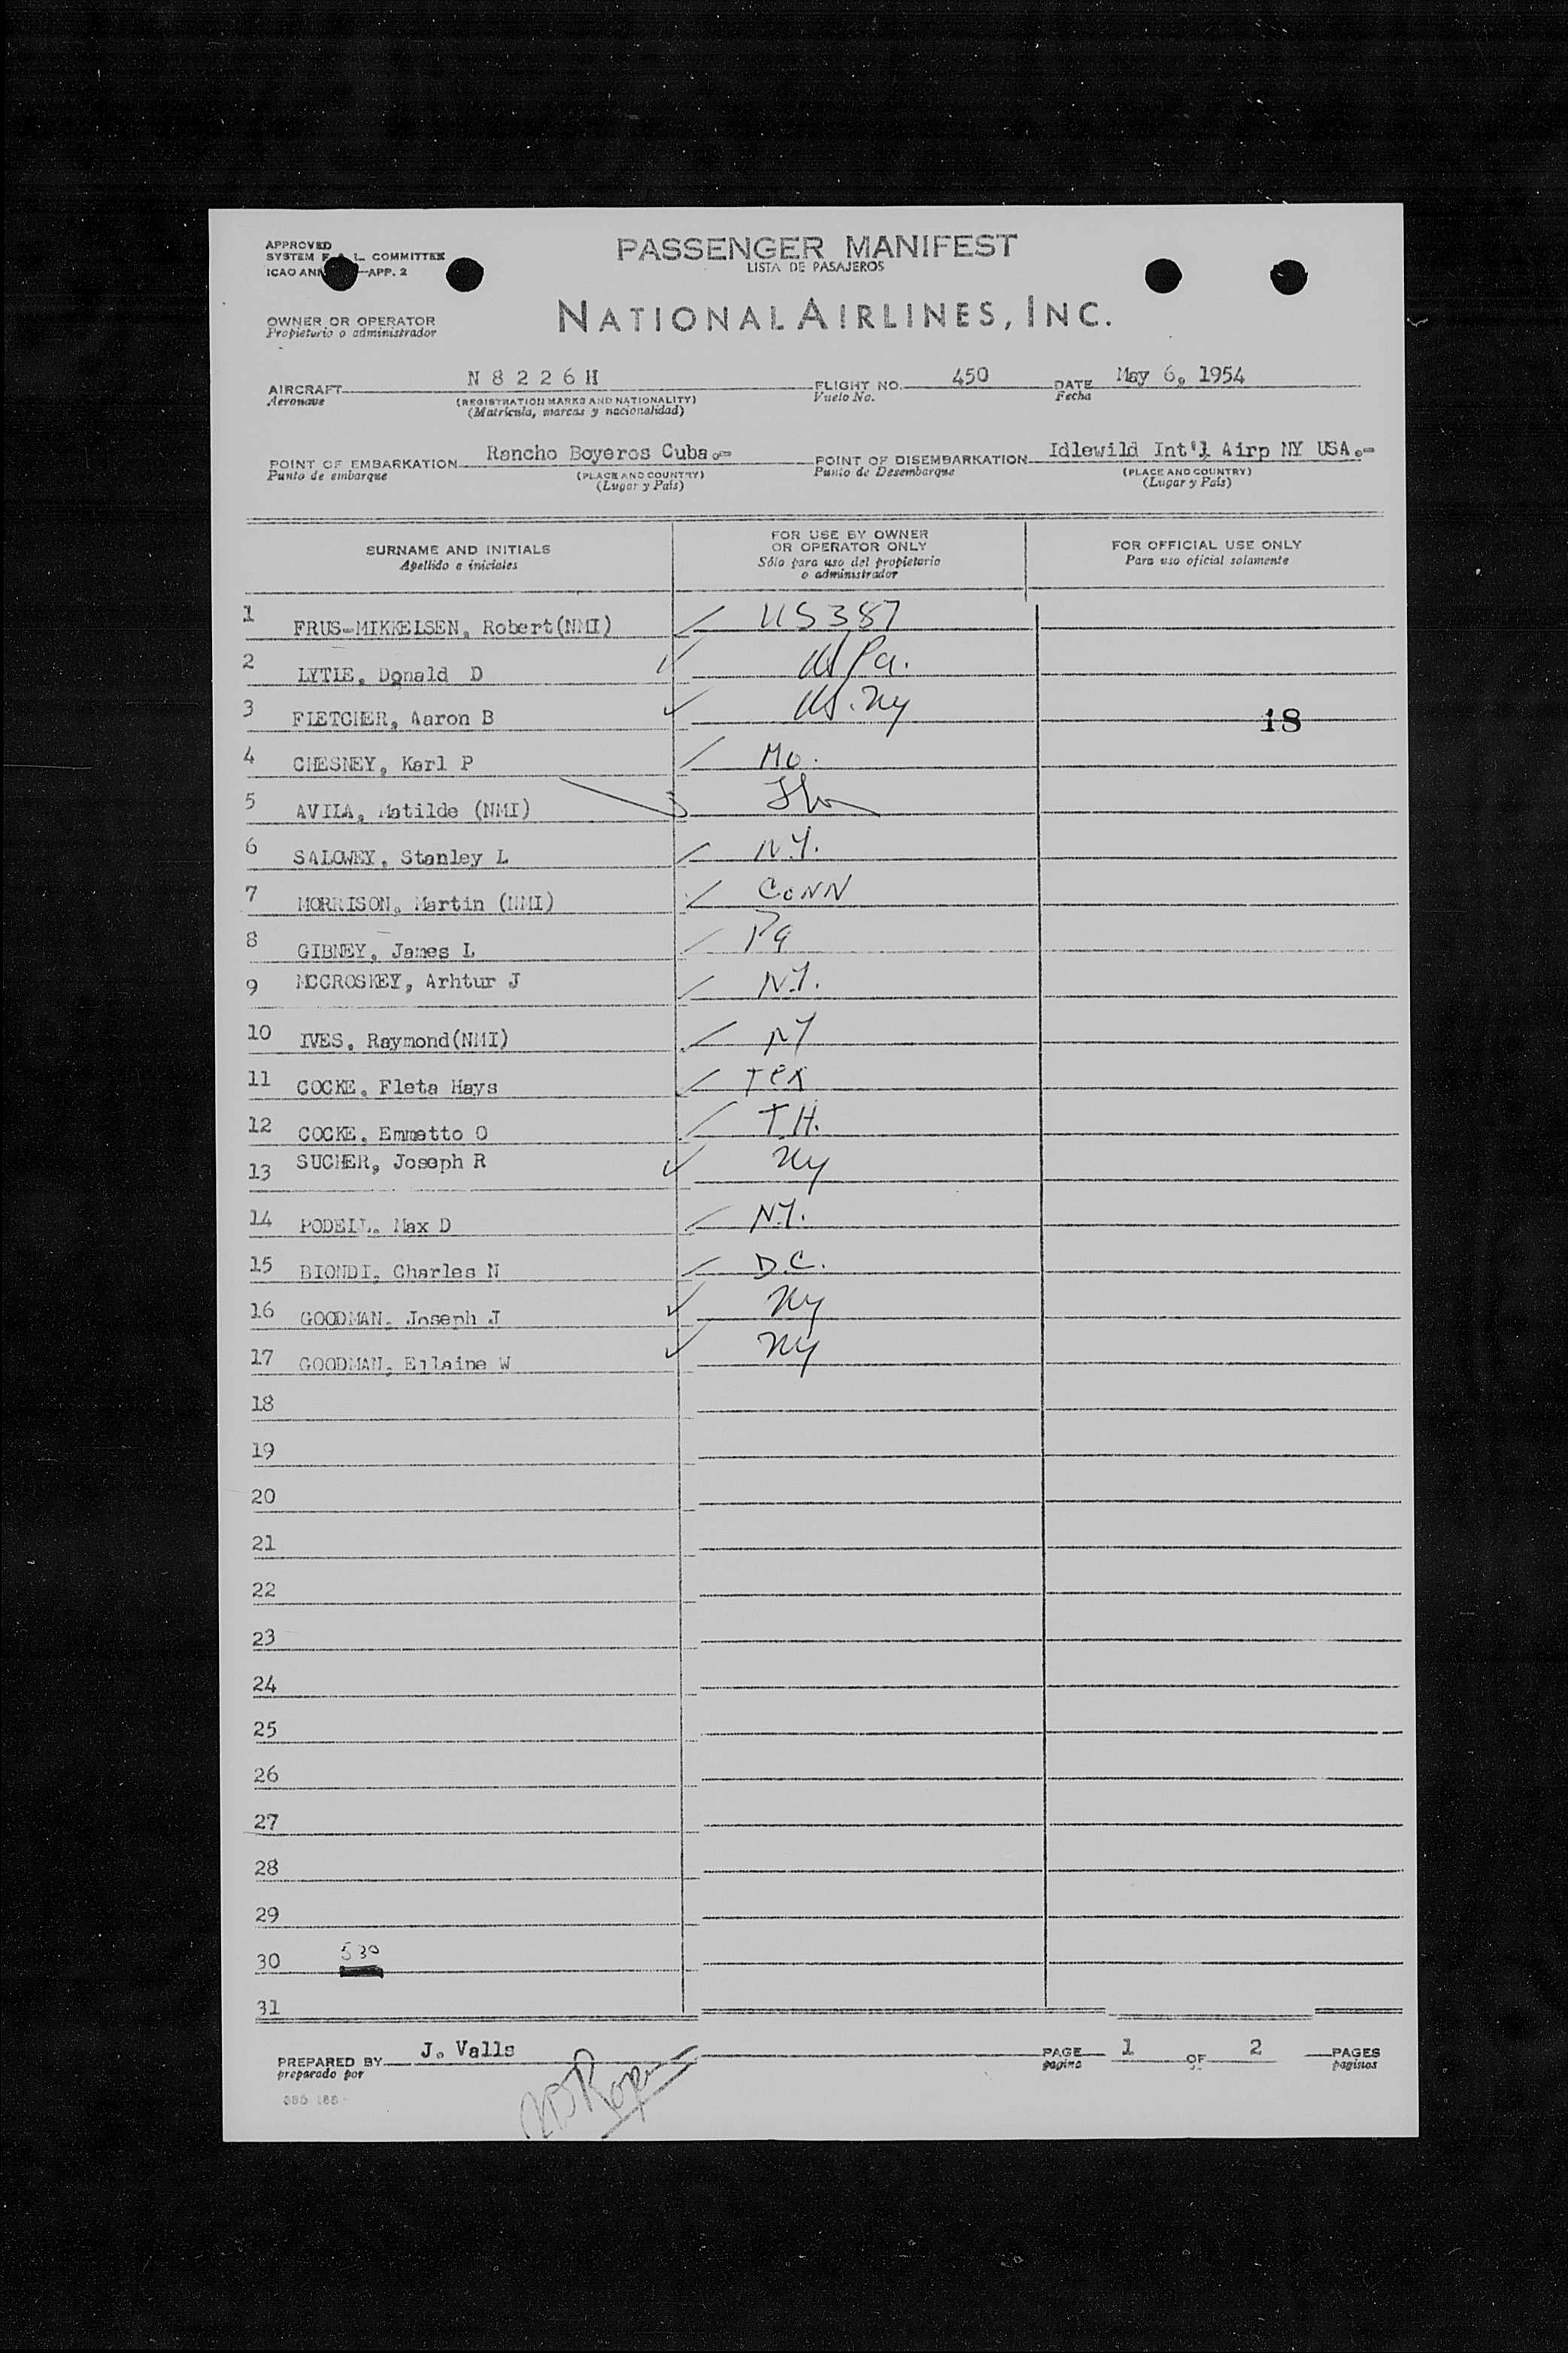 APPROVED
SYSTEM F.A.L. COMMITTEE
ICAO ANN APP. 2
PASSENGER MANIFEST
LISTA DE PASAJEROS
OWNER OR OPERATOR
Propietario o administrador
NATIONAL AIRLINES, INC.
AIRCRAFT N 8 2 2 6 H FLIGHT NO. 450 DATE May 6, 1954
Aeronave (REGISTRATION MARKS AND NATIONALITY) Vuelo No. Fecha
(Matrícula, marcas y nacionalidad)
POINT OF EMBARKATION Rancho Boyeros Cuba.- POINT OF DISEMBARKATION Idlewild Int'l Airp NY USA.-
Punto de embarque (PLACE AND COUNTRY) Punto de Desembarque (PLACE AND COUNTRY)
(Lugar y País) (Lugar y País)
SURNAME AND INITIALS
Apellido e iniciales
FOR USE BY OWNER
OR OPERATOR ONLY
Sólo para uso del propietario
o administrador
FOR OFFICIAL USE ONLY
Para uso oficial solamente
1 FRUS-MIKKELSEN, Robert(NMI) US387
2 LYTLE, Donald D US Pa.
3 FLETCHER, Aaron B US. Ny 18
4 CHESNEY, Karl P Mo.
5 AVILA, Matilde (NMI)
6 SALOWEY, Stanley L N.Y.
7 MORRISON, Martin (NMI) CONN
8 GIBNEY, James L Pa
9 MCCROSKEY, Arhtur J N.Y.
10 IVES, Raymond(NMI) NY
11 COCKE, Fleta Hays Tex
12 COCKE, Emmetto O T.H.
13 SUCHER, Joseph R Ny
14 PODELL, Max D N.Y.
15 BIONDI, Charles N D.C.
16 GOODMAN, Joseph J Ny
17 GOODMAN, Eilaine W Ny
18
19
20
21
22
23
24
25
26
27
28
29
30 530
31
PREPARED BY J. Valls PAGE 1 OF 2 PAGES
preparado por pagina paginas